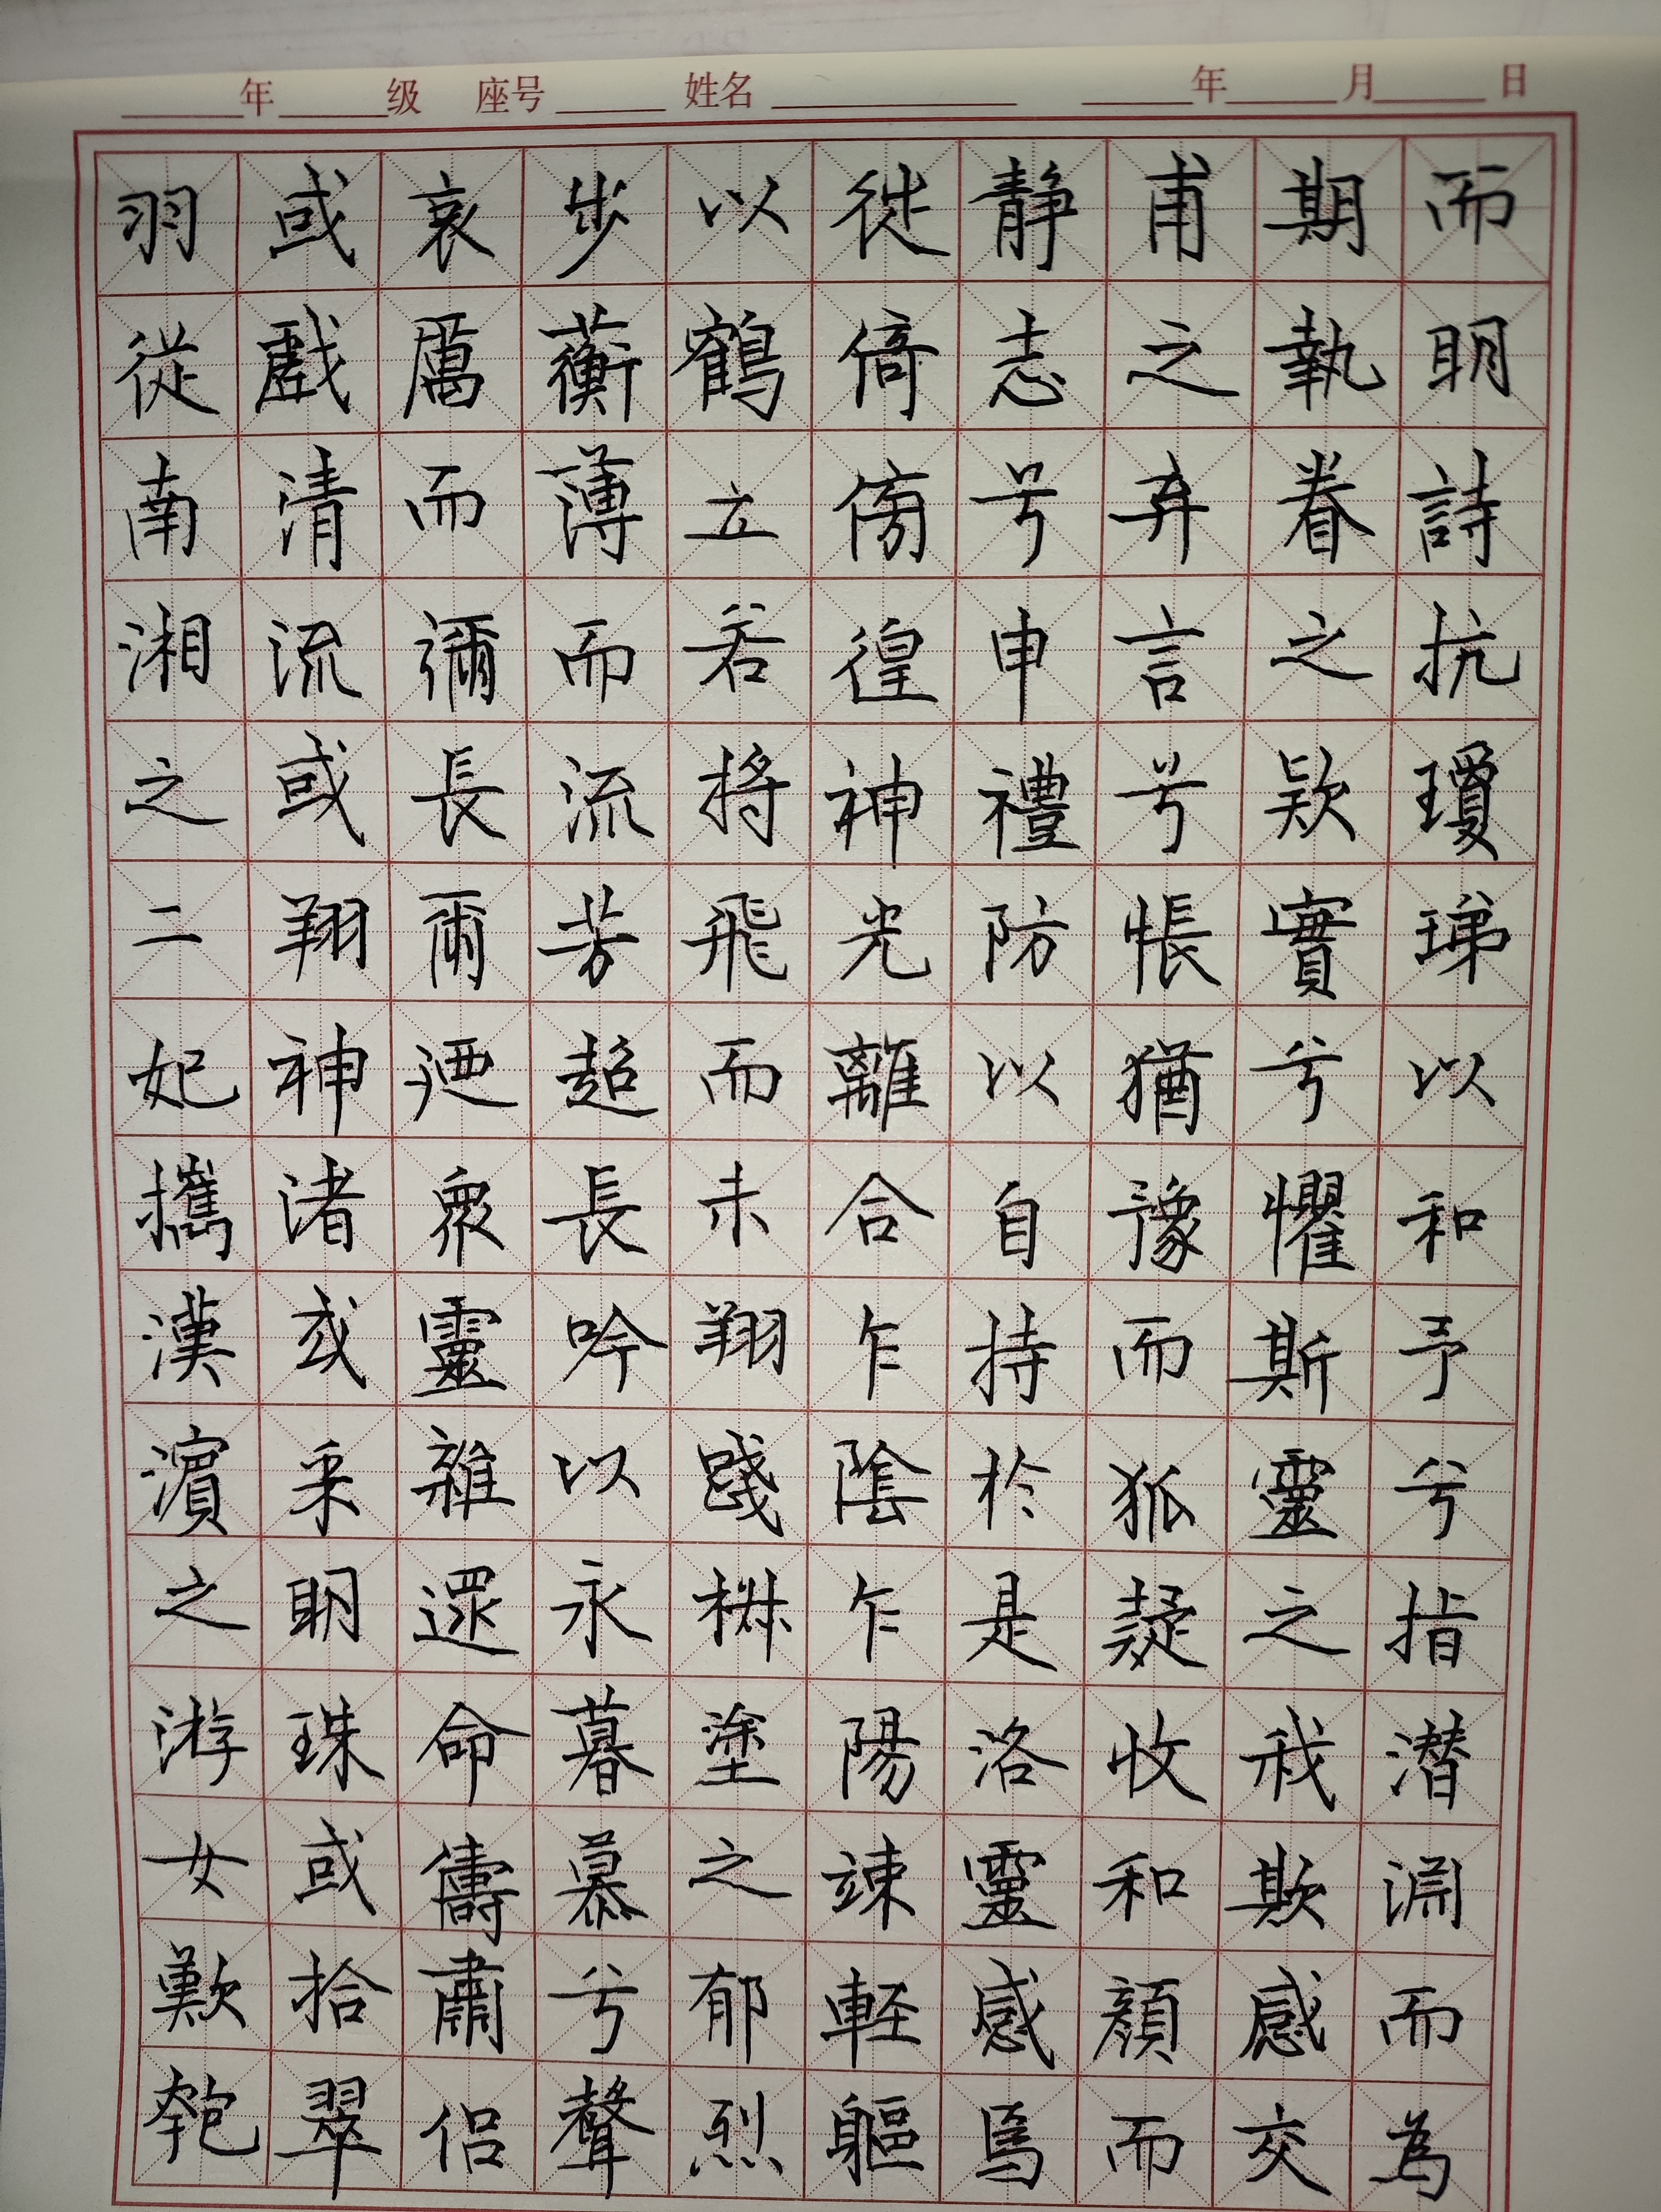 年 级 座号 姓名 年 月 日
而明詩抗瓊珶以和予兮指潜淵而為
期執眷之款實兮懼斯靈之我欺感交
甫之弃言兮悵猶豫而狐疑收和顏而
静志兮申禮防以自持於是洛靈感焉
徙倚傍徨神光離合乍陰乍陽竦軽軀
以鶴立若將飛而未翔踐椒塗之郁烈
步蘅薄而流芳超長吟以永暮慕兮聲
哀厲而彌長爾迺衆靈雜遝命儔嘯侣
或戲清流或翔神渚或采明珠或拾翠
羽從南湘之二妃攜漢濱之游女歎匏